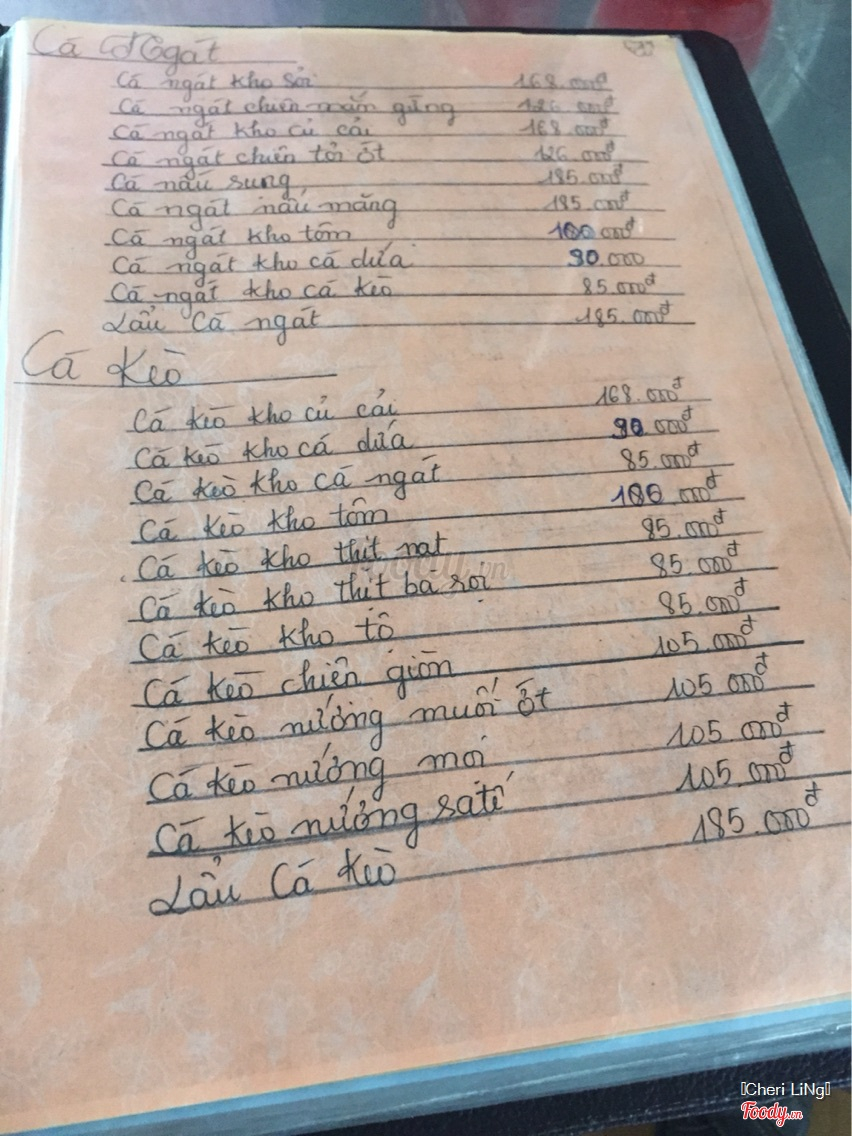 Cá Ngát
Cá ngát kho sỏi 168.000đ
Cá ngát chiên mắm gừng 126.000đ
Cá ngát kho củ cải 168.000đ
Cá ngát chiên tỏi ớt 126.000đ
Cá nấu sung 185.000đ
Cá ngát nấu măng 185.000đ
Cá ngát kho tôm 100.000đ
Cá ngát kho cá dứa 90.000
Cá ngát kho cá kèo 85.000đ
Lẩu Cá ngát 185.000đ
Cá Kèo
Cá kèo kho củ cải 168.000đ
Cá kèo kho cá dứa 90.000đ
Cá kèo kho cá ngát 85.000đ
Cá kèo kho tôm 100.000đ
Cá kèo kho thịt nạt 85.000đ
Cá kèo kho thịt ba rọi 85.000đ
Cá kèo kho tộ 85.000đ
Cá kèo chiên giòn 105.000đ
Cá kèo nướng muối ớt 105 000đ
Cá kèo nướng mọi 105 000đ
Cá kèo nướng satế 105 000đ
Lẩu Cá kèo 185.000đ
foody.vn
Cheri LiNg
Foody.vn